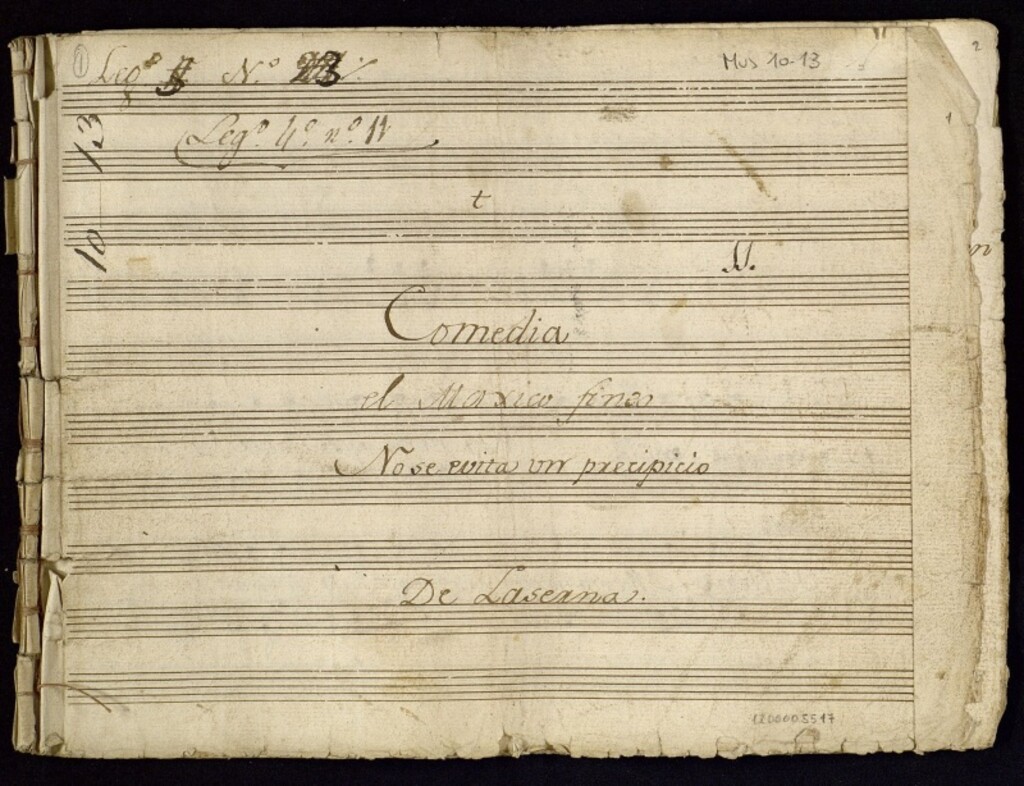 1 Leg.º N.º 23 Mus 10-13 2
Leg.º 4.º n.º 11 1
13
t
10
Comedia
el Maxico fineza
No se evita un precipicio
De Laserna.